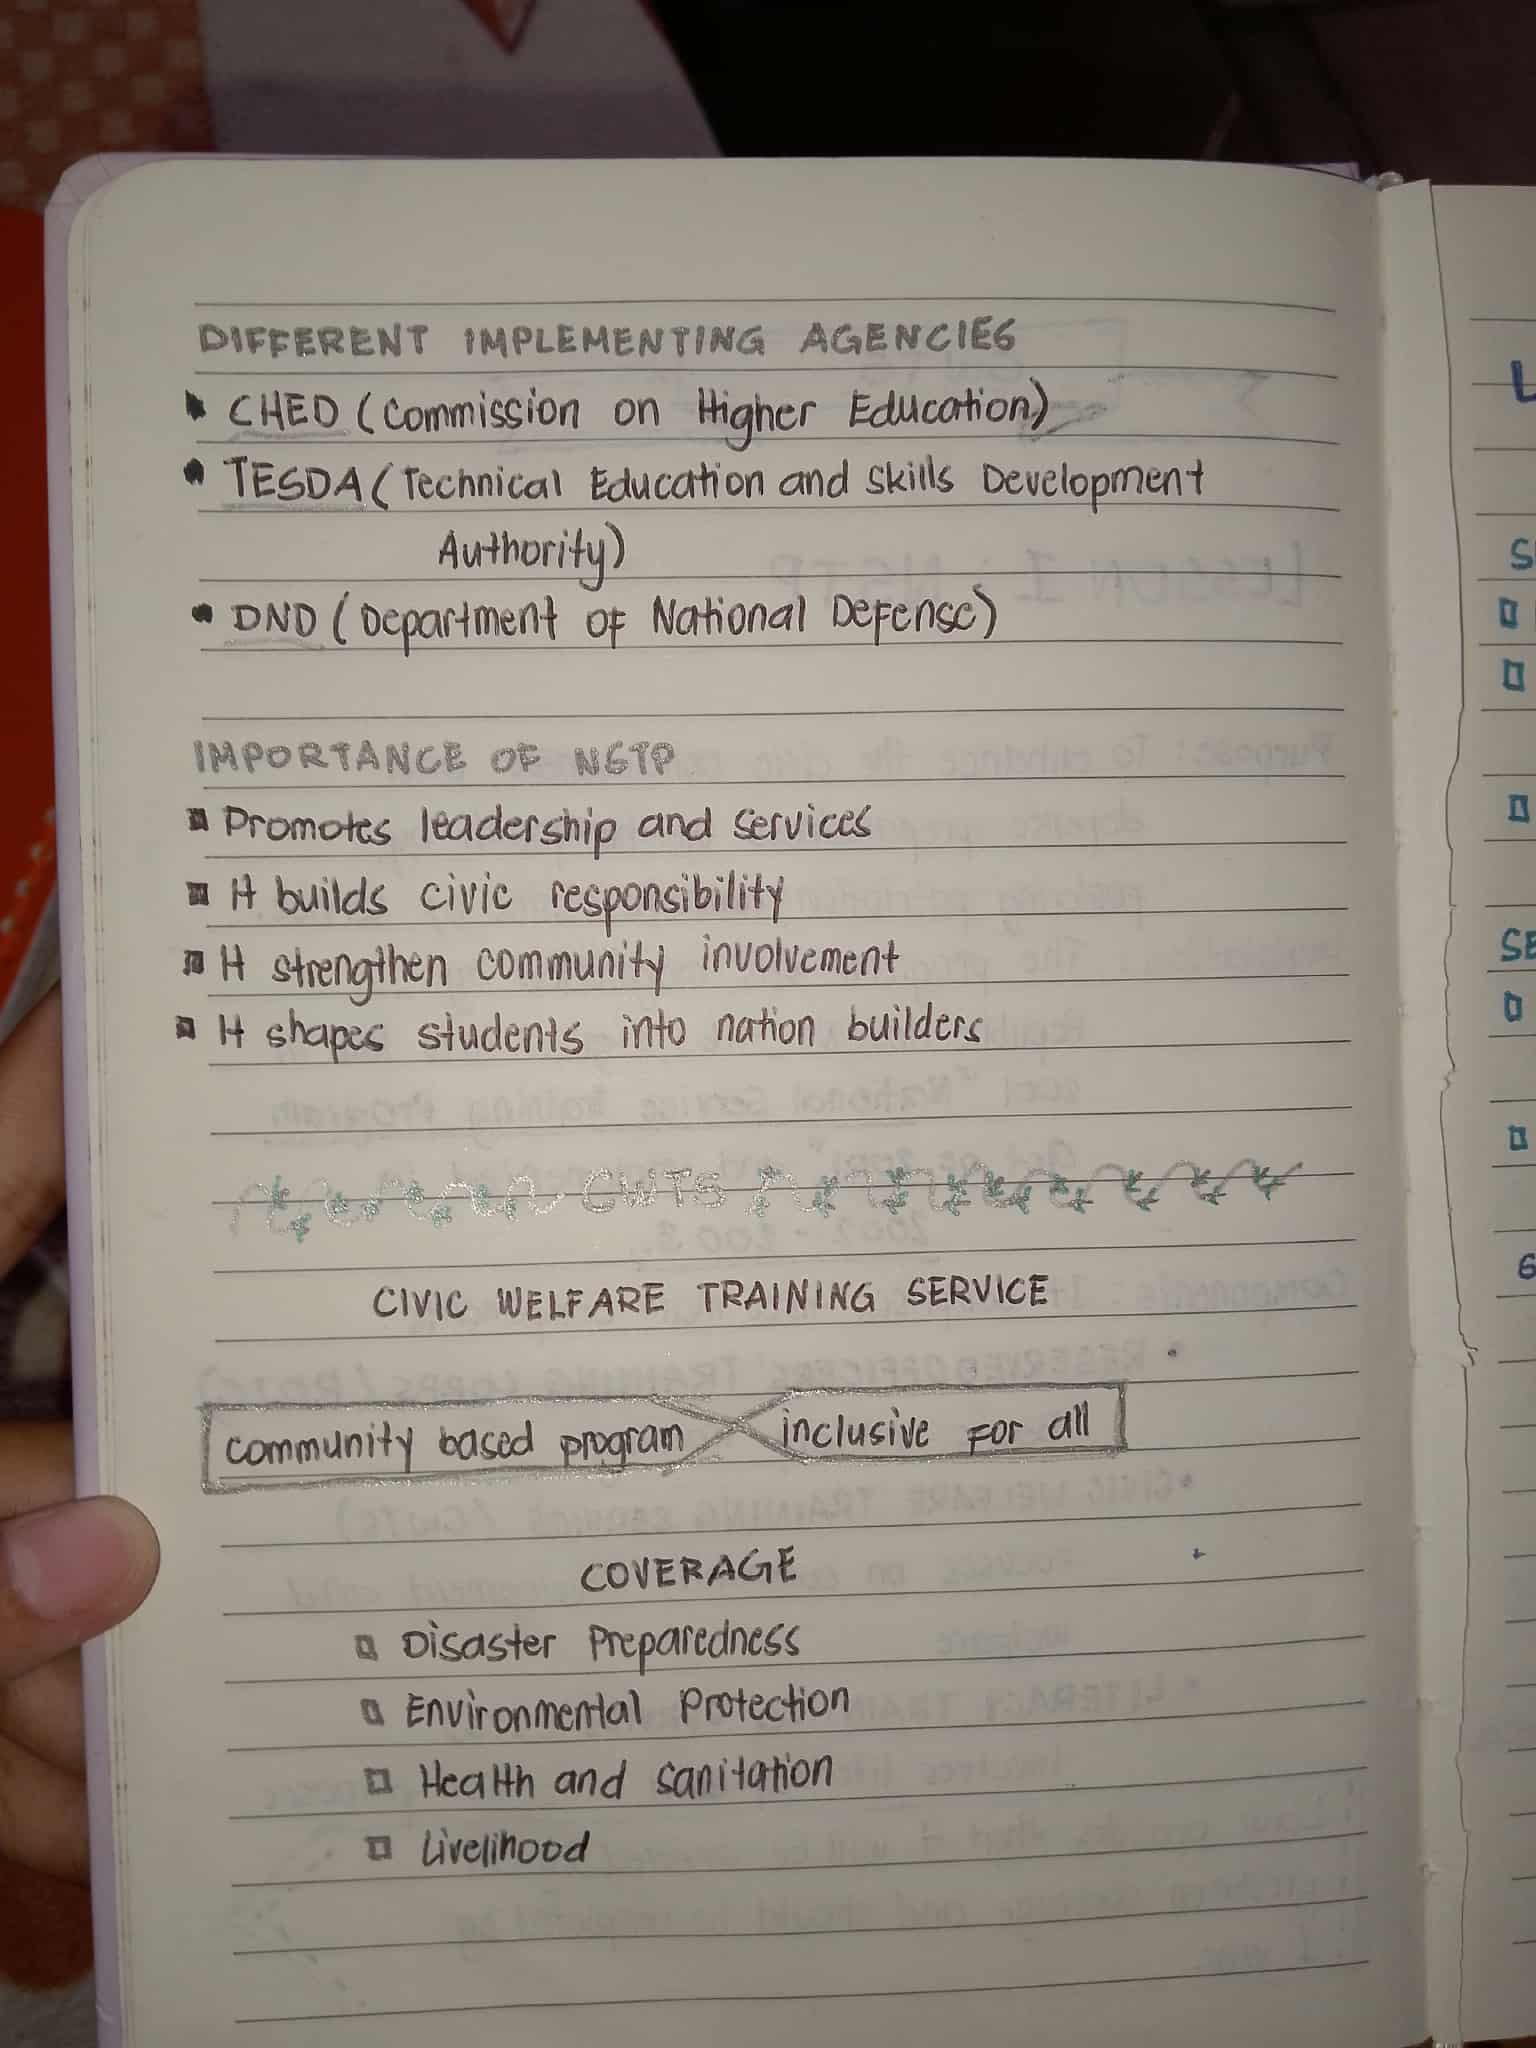 DIFFERENT IMPLEMENTING AGENCIES
• CHED (Commission on Higher Education)
• TESDA (Technical Education and Skills Development
Authority)
• DND (Department of National Defense)
IMPORTANCE OF NSTP
Promotes leadership and services
It builds civic responsibility
It strengthen community involvement
It shapes students into nation builders
CWTS
CIVIC WELFARE TRAINING SERVICE
community based program inclusive for all
COVERAGE
Disaster Preparedness
Environmental Protection
Health and sanitation
Livelihood